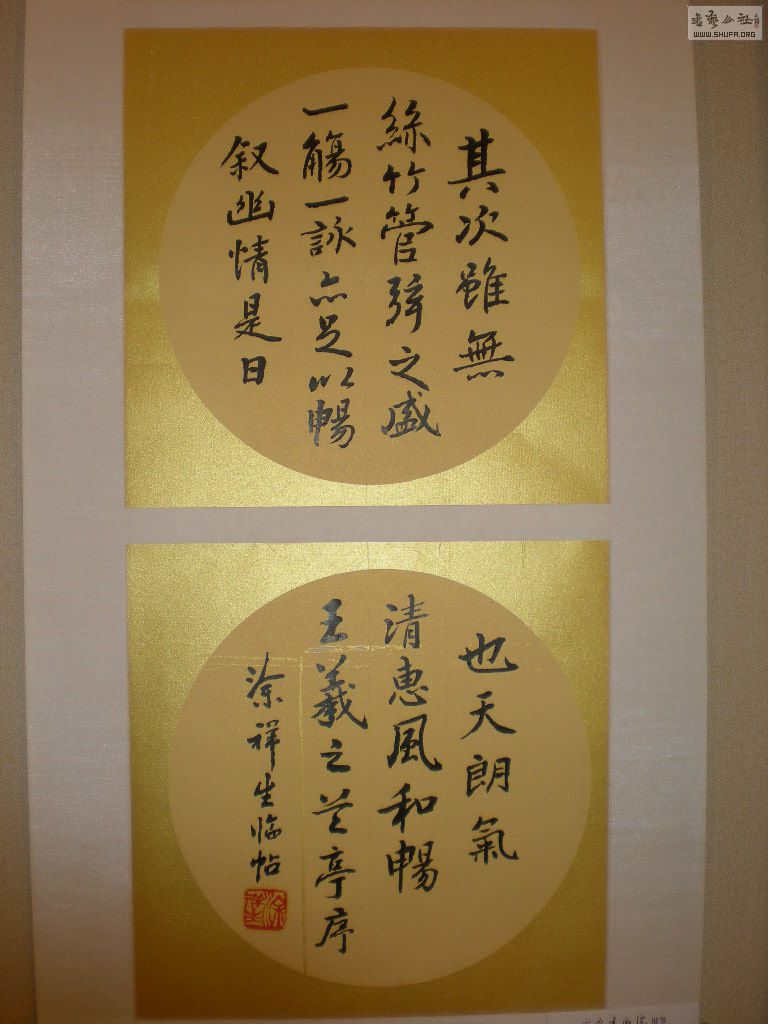 其次雖無
絲竹管弦之盛
一觴一詠亦足以暢
叙幽情是日
也天朗氣
清惠風和暢
王羲之兰亭序
涂祥生临帖
书艺公社
WWW.SHUFA.ORG